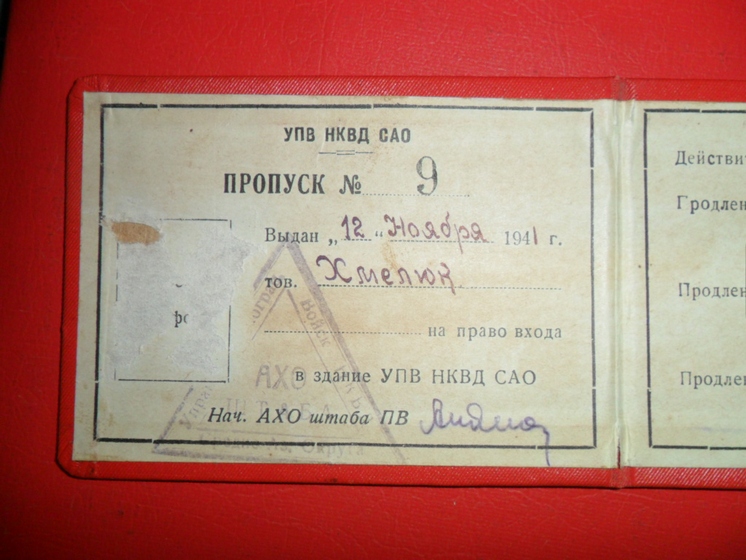 УПВ НКВД САО
ПРОПУСК № 9
Выдан „12“ Ноября 1941 г.
тов. Хмелюк
на право входа
в здание УПВ НКВД САО
Нач. АХО штаба ПВ
АХО
ШТАБА
Войск
Округа
Действи
Гродлен
Продле
Продле